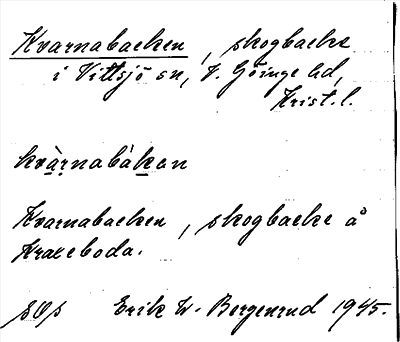 Kvarnabacken, skogbacke
i Vittsjö sn, V. Göinge hd,
Krist. l.
kvàrnabákan
Kvarnabacken, skogbacke å
Erik W. Bergenrud 1945.